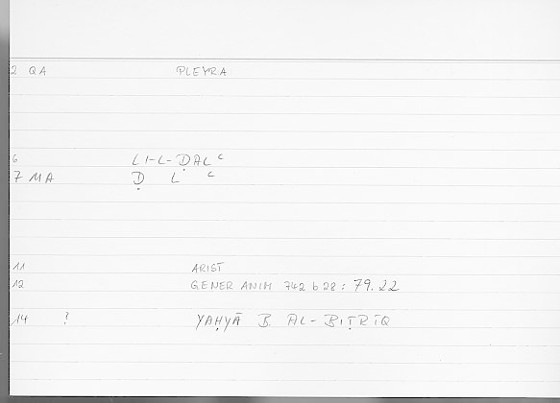 2 QA PLEYRA
6 LI-L-ḌALʿ
7 MA Ḍ L ʿ
11 ARIST
12 GENER ANIM 742 b 28 : 79.22
14 ? YAḤYĀ B. AL-BIṬRĪQ